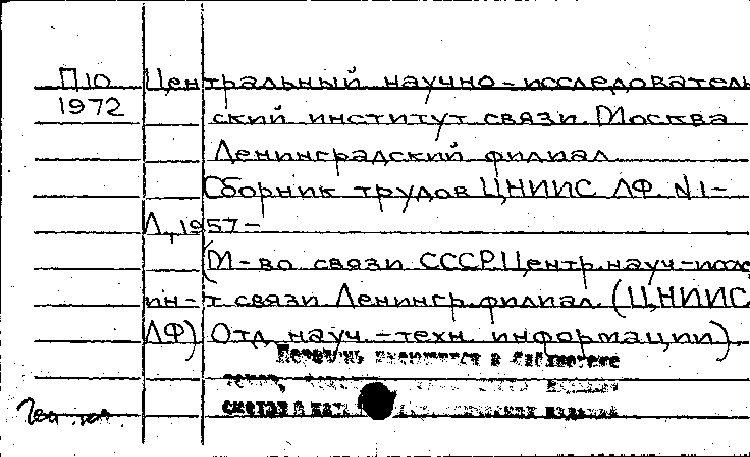 П10 Центральный научно-исследователь
1972 ский институт связи. Москва
Ленинградский филиал
Сборник трудов ЦНИИС ЛФ. N1-
Л., 1957-
(М-во связи СССР. Центр. науч-исслед
ин-т связи. Ленингр. филиал. (ЦНИИС
ЛФ) Отд. науч.-техн. информации).
в библиотеке
смотри в
изданий